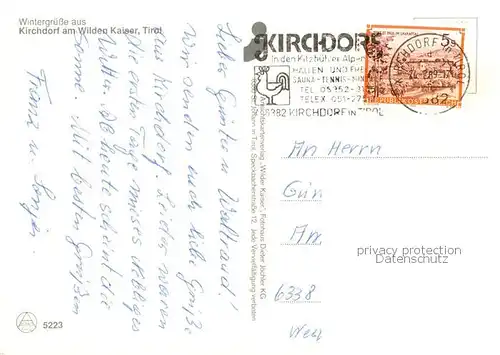 Wintergrüße aus
Kirchdorf am Wilden Kaiser, Tirol
Lieber Günter u. Waltraud!
Wir senden euch liebe Grüße
aus Kirchdorf. Leider waren
die ersten Tage mieses nebliges
Wetter. Ab heute scheint die
Sonne. Mit besten Grüßen
Franz u.
5223
Ansichtskartenverlag „Wilder Kaiser“, Fotohaus Dieter Jöchler KG
in Tirol, Speckbacherstraße 12. Jede Vervielfältigung verboten
KIRCHDORF
in den Kitzbühler Alpen
HALLEN- UND
SAUNA-TENNIS-
TEL. 05352-31
TELEX 051-27
6382 KIRCHDORF IN TIROL
5 S
REPUBLIK ÖSTERREICH
KIRCHDORF
6382
An Herrn
Gün
Am
6338
Weg
privacy protection
Datenschutz